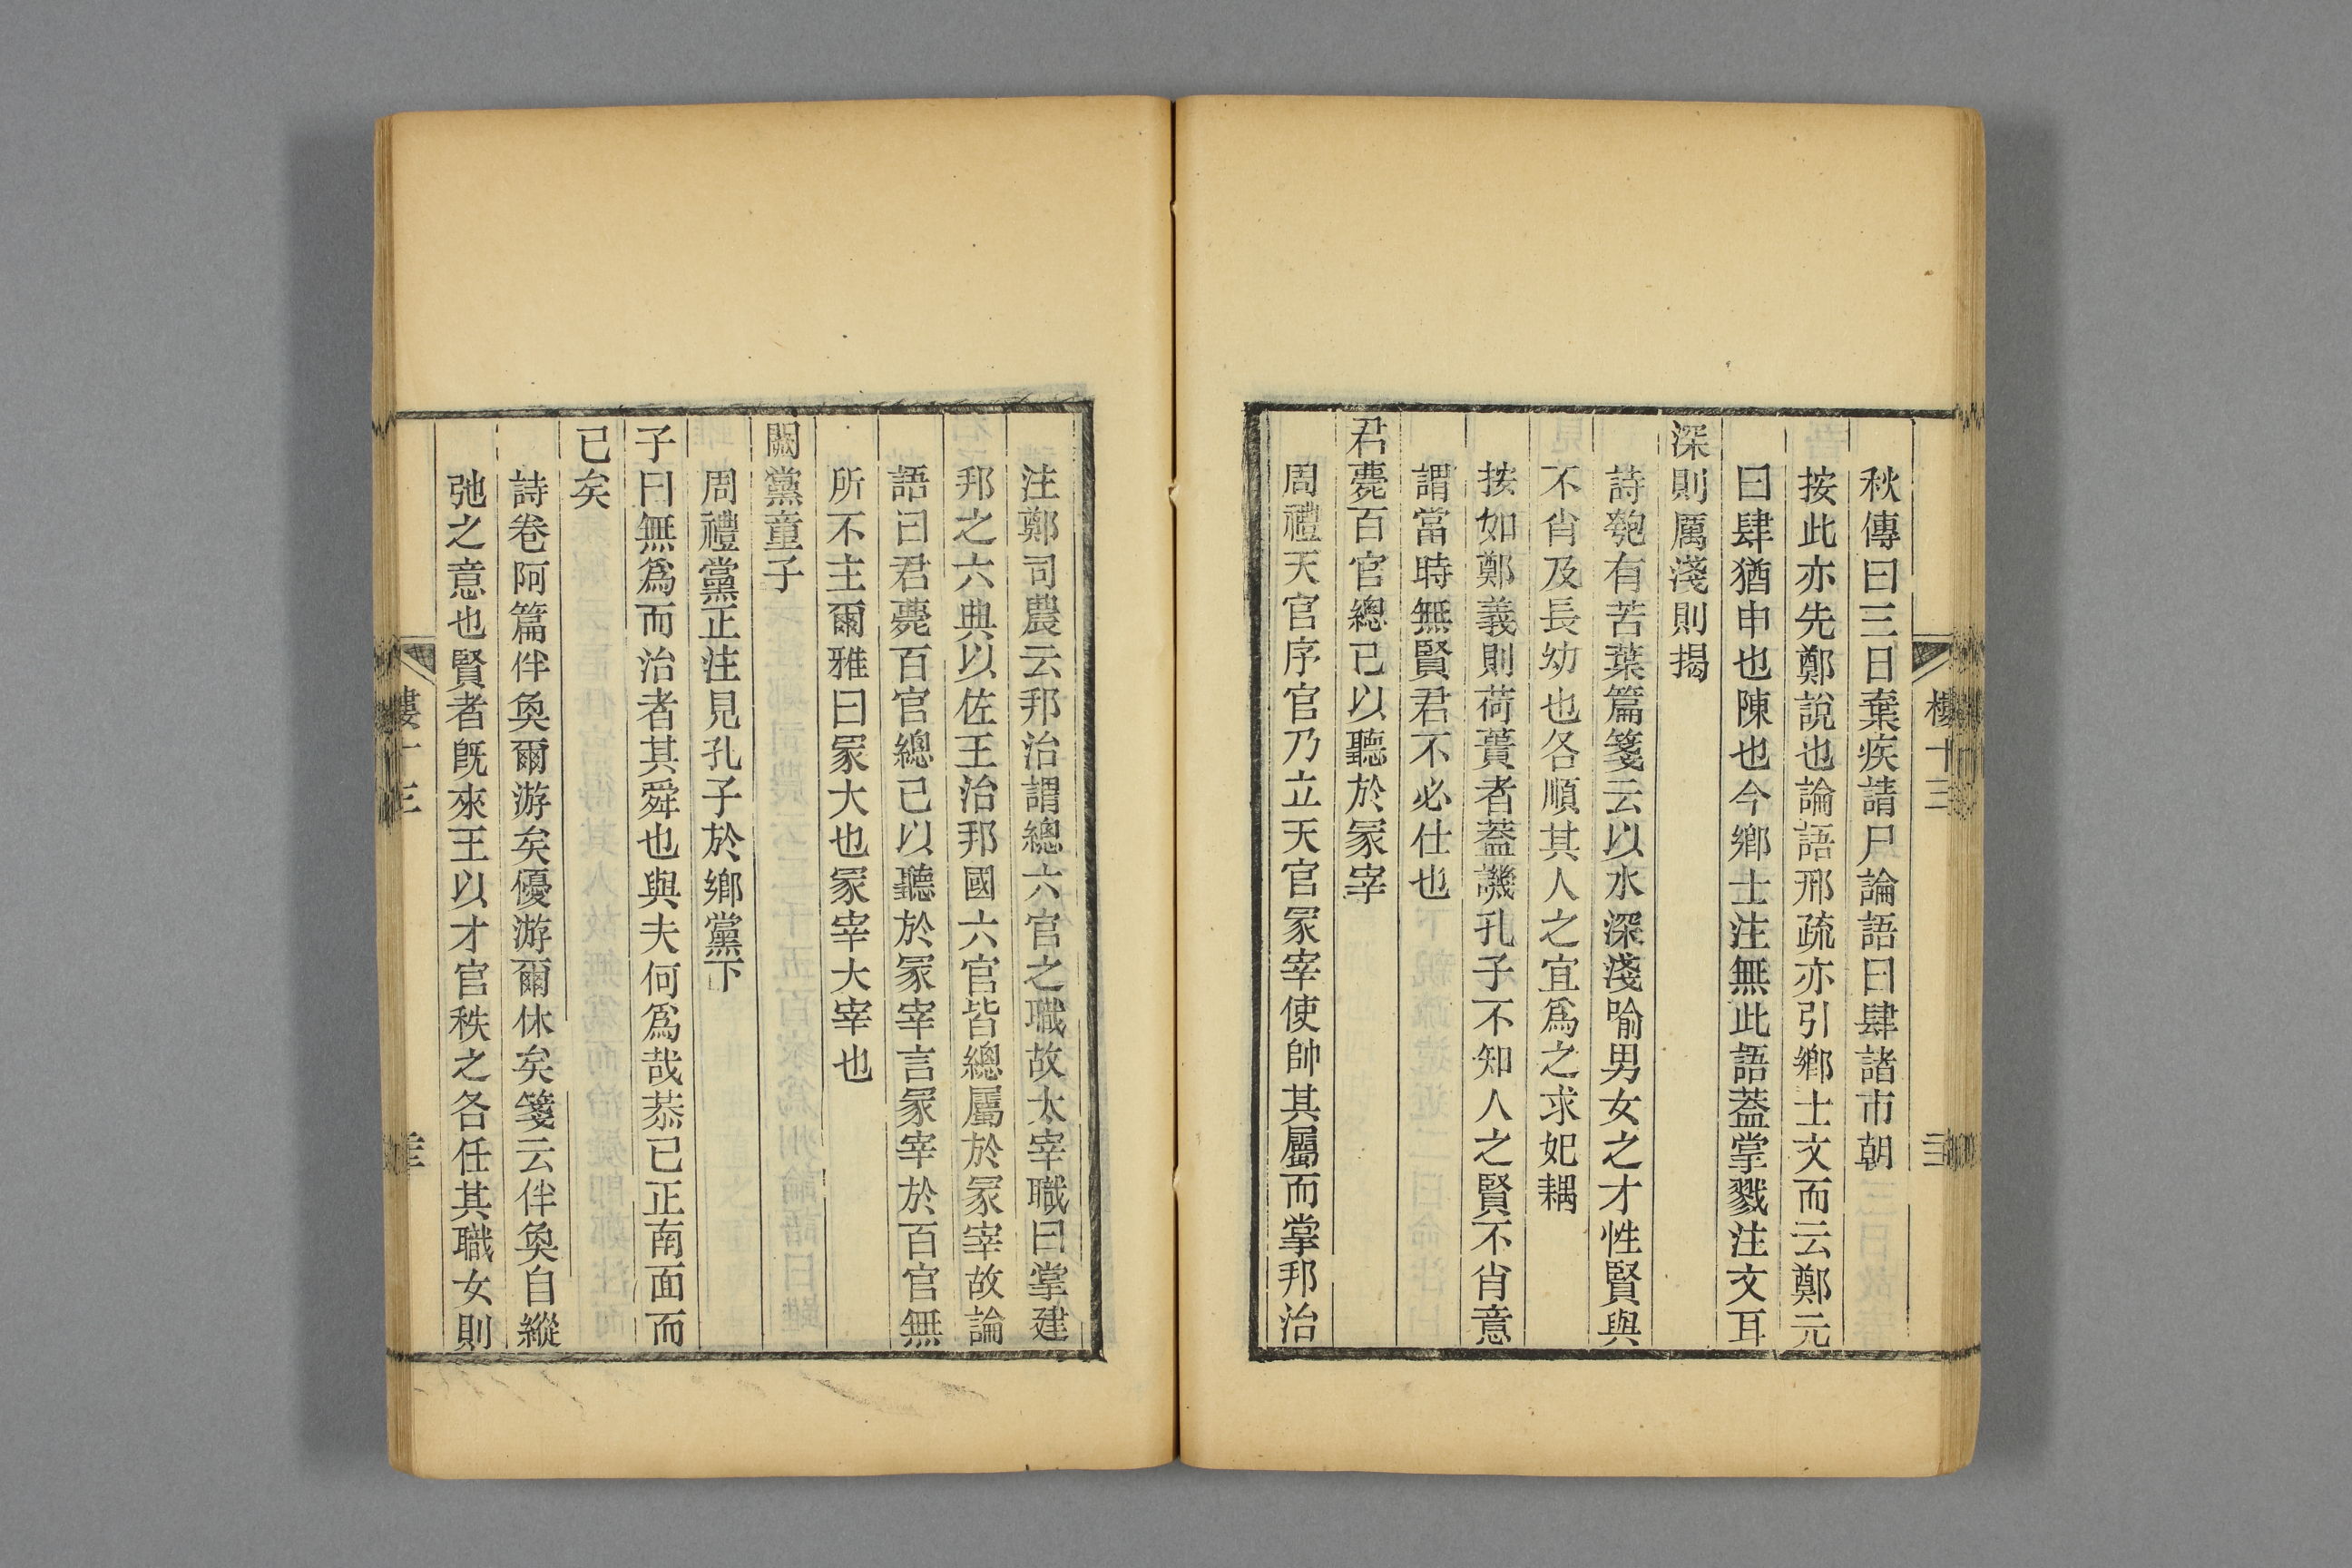 秋傳曰三日棄疾請尸論語曰肆諸市朝
按此亦先鄭說也論語邢疏亦引鄉士文而云鄭元
曰肆猶申也陳也今鄉士注無此語蓋掌戮注文耳
深則厲淺則揭
詩匏有苦葉篇箋云以水深淺喻男女之才性賢與
不肖及長幼也各順其人之宜爲之求妃耦
按如鄭義則荷蕢者蓋譏孔子不知人之賢不肖意
謂當時無賢君不必仕也
君薨百官總己以聽於冢宰
周禮天官序官乃立天官冢宰使帥其屬而掌邦治
注鄭司農云邦治謂總六官之職故太宰職曰掌建
邦之六典以佐王治邦國六官皆總屬於冢宰故論
語曰君薨百官總己以聽於冢宰言冢宰於百官無
所不主爾雅曰冢大也冢宰大宰也
闕黨童子
周禮黨正注見孔子於鄉黨下
子曰無爲而治者其舜也與夫何爲哉恭已正南面而
已矣
詩卷阿篇伴奐爾游矣優游爾休矣箋云伴奐自縱
弛之意也賢者旣來王以才官秩之各任其職女則